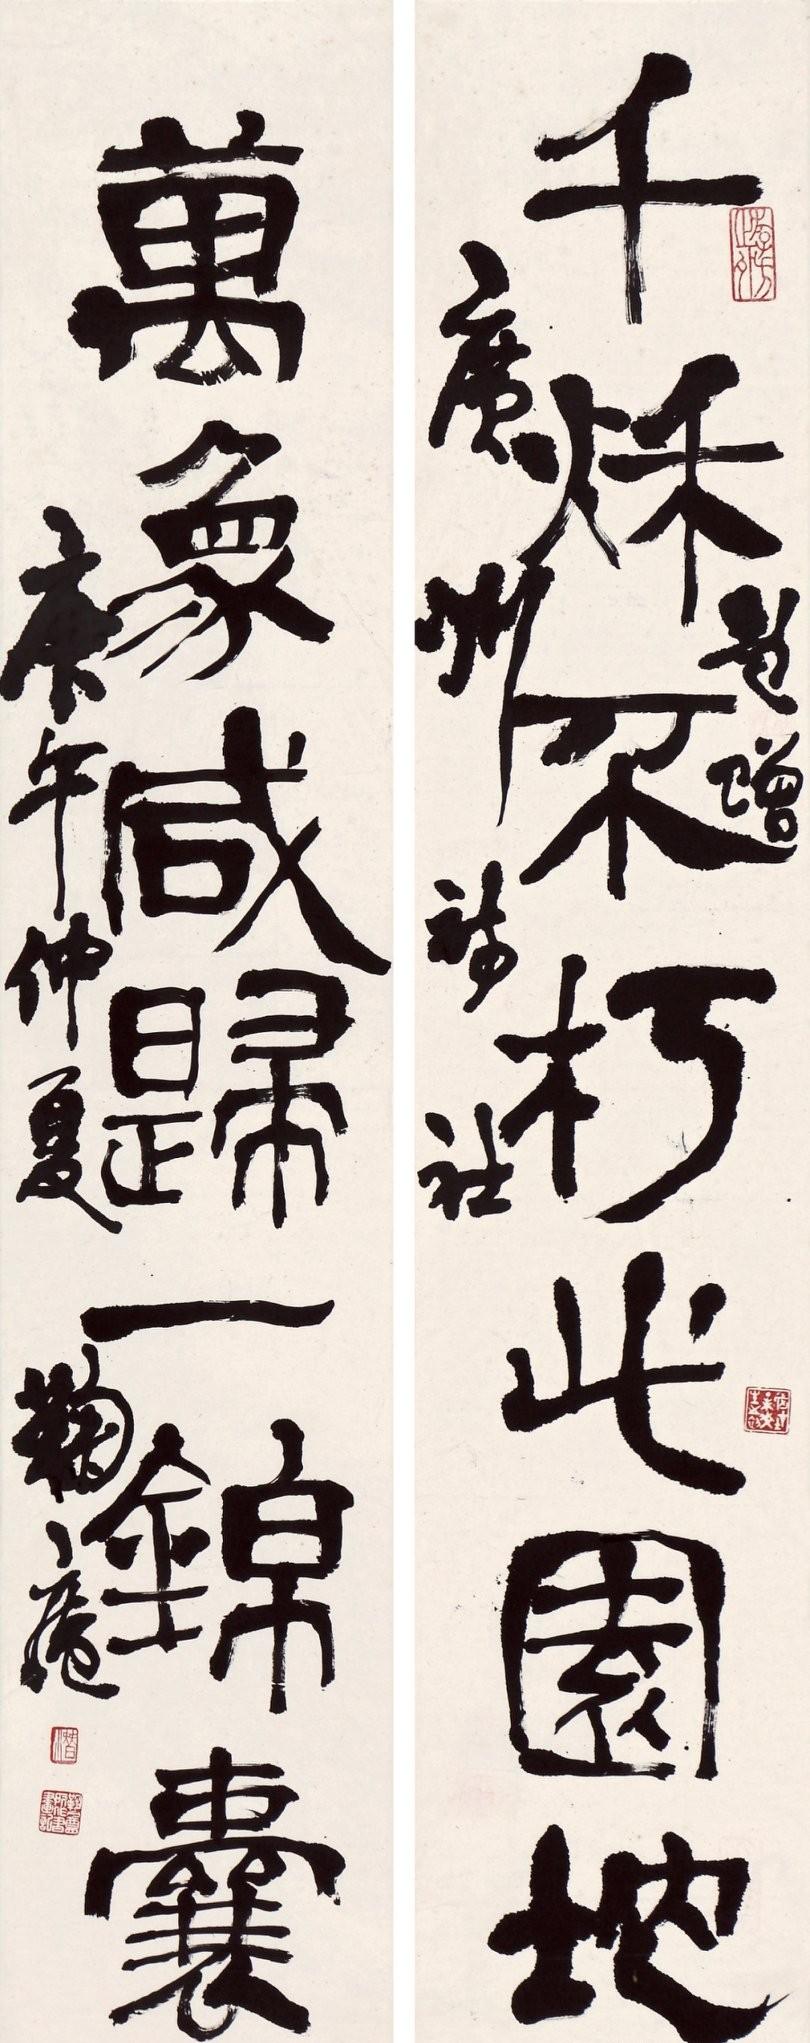 千秋不朽此園地
題贈
廣州詩社
萬象咸歸一錦囊
庚午仲夏
鞠庵